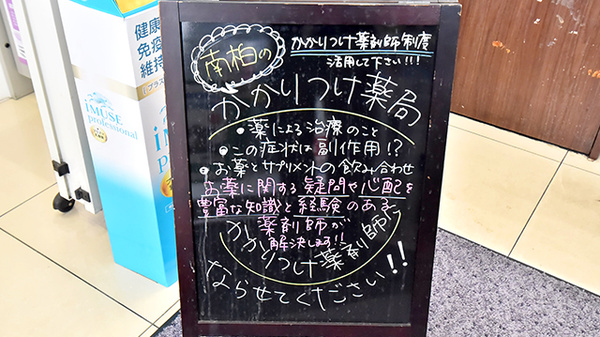 健康
免疫
維持
iMUSE
professional
南柏の
かかりつけ薬剤師制度
活用して下さい!!!
かかりつけ薬局
・薬による治療のこと
・この症状は副作用!?
・お薬とサプリメントの飲み合わせ
お薬に関する疑問や心配を
豊富な知識と経験のある
薬剤師が
解決します!!
かかりつけ薬剤師に
ならせてください!!